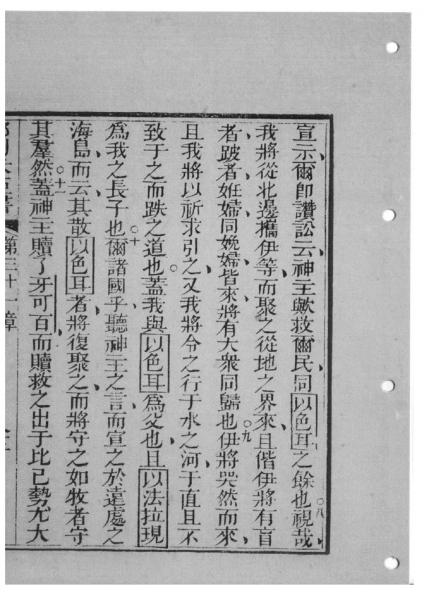 宣示爾即讚訟云神主歟救爾民同以色耳之餘也○八視哉
我將從北邊攜伊等而聚之從地之界來且偕伊將有盲
者跛者姙婦同娩婦皆來將有大衆同歸也○九伊將哭然而來
且我將以祈求引之又我將令之行于水之河于直且不
致于之而跌之道也蓋我與以色耳為父也且以法拉現
為我之長子也○十爾諸國乎聽神主之言而宣之於遠處之
海島而云其散以色耳者將復聚之而將守之如牧者守
其羣然○十一蓋神主贖了牙可百而贖救之出于比己勢尤大
第三十一章